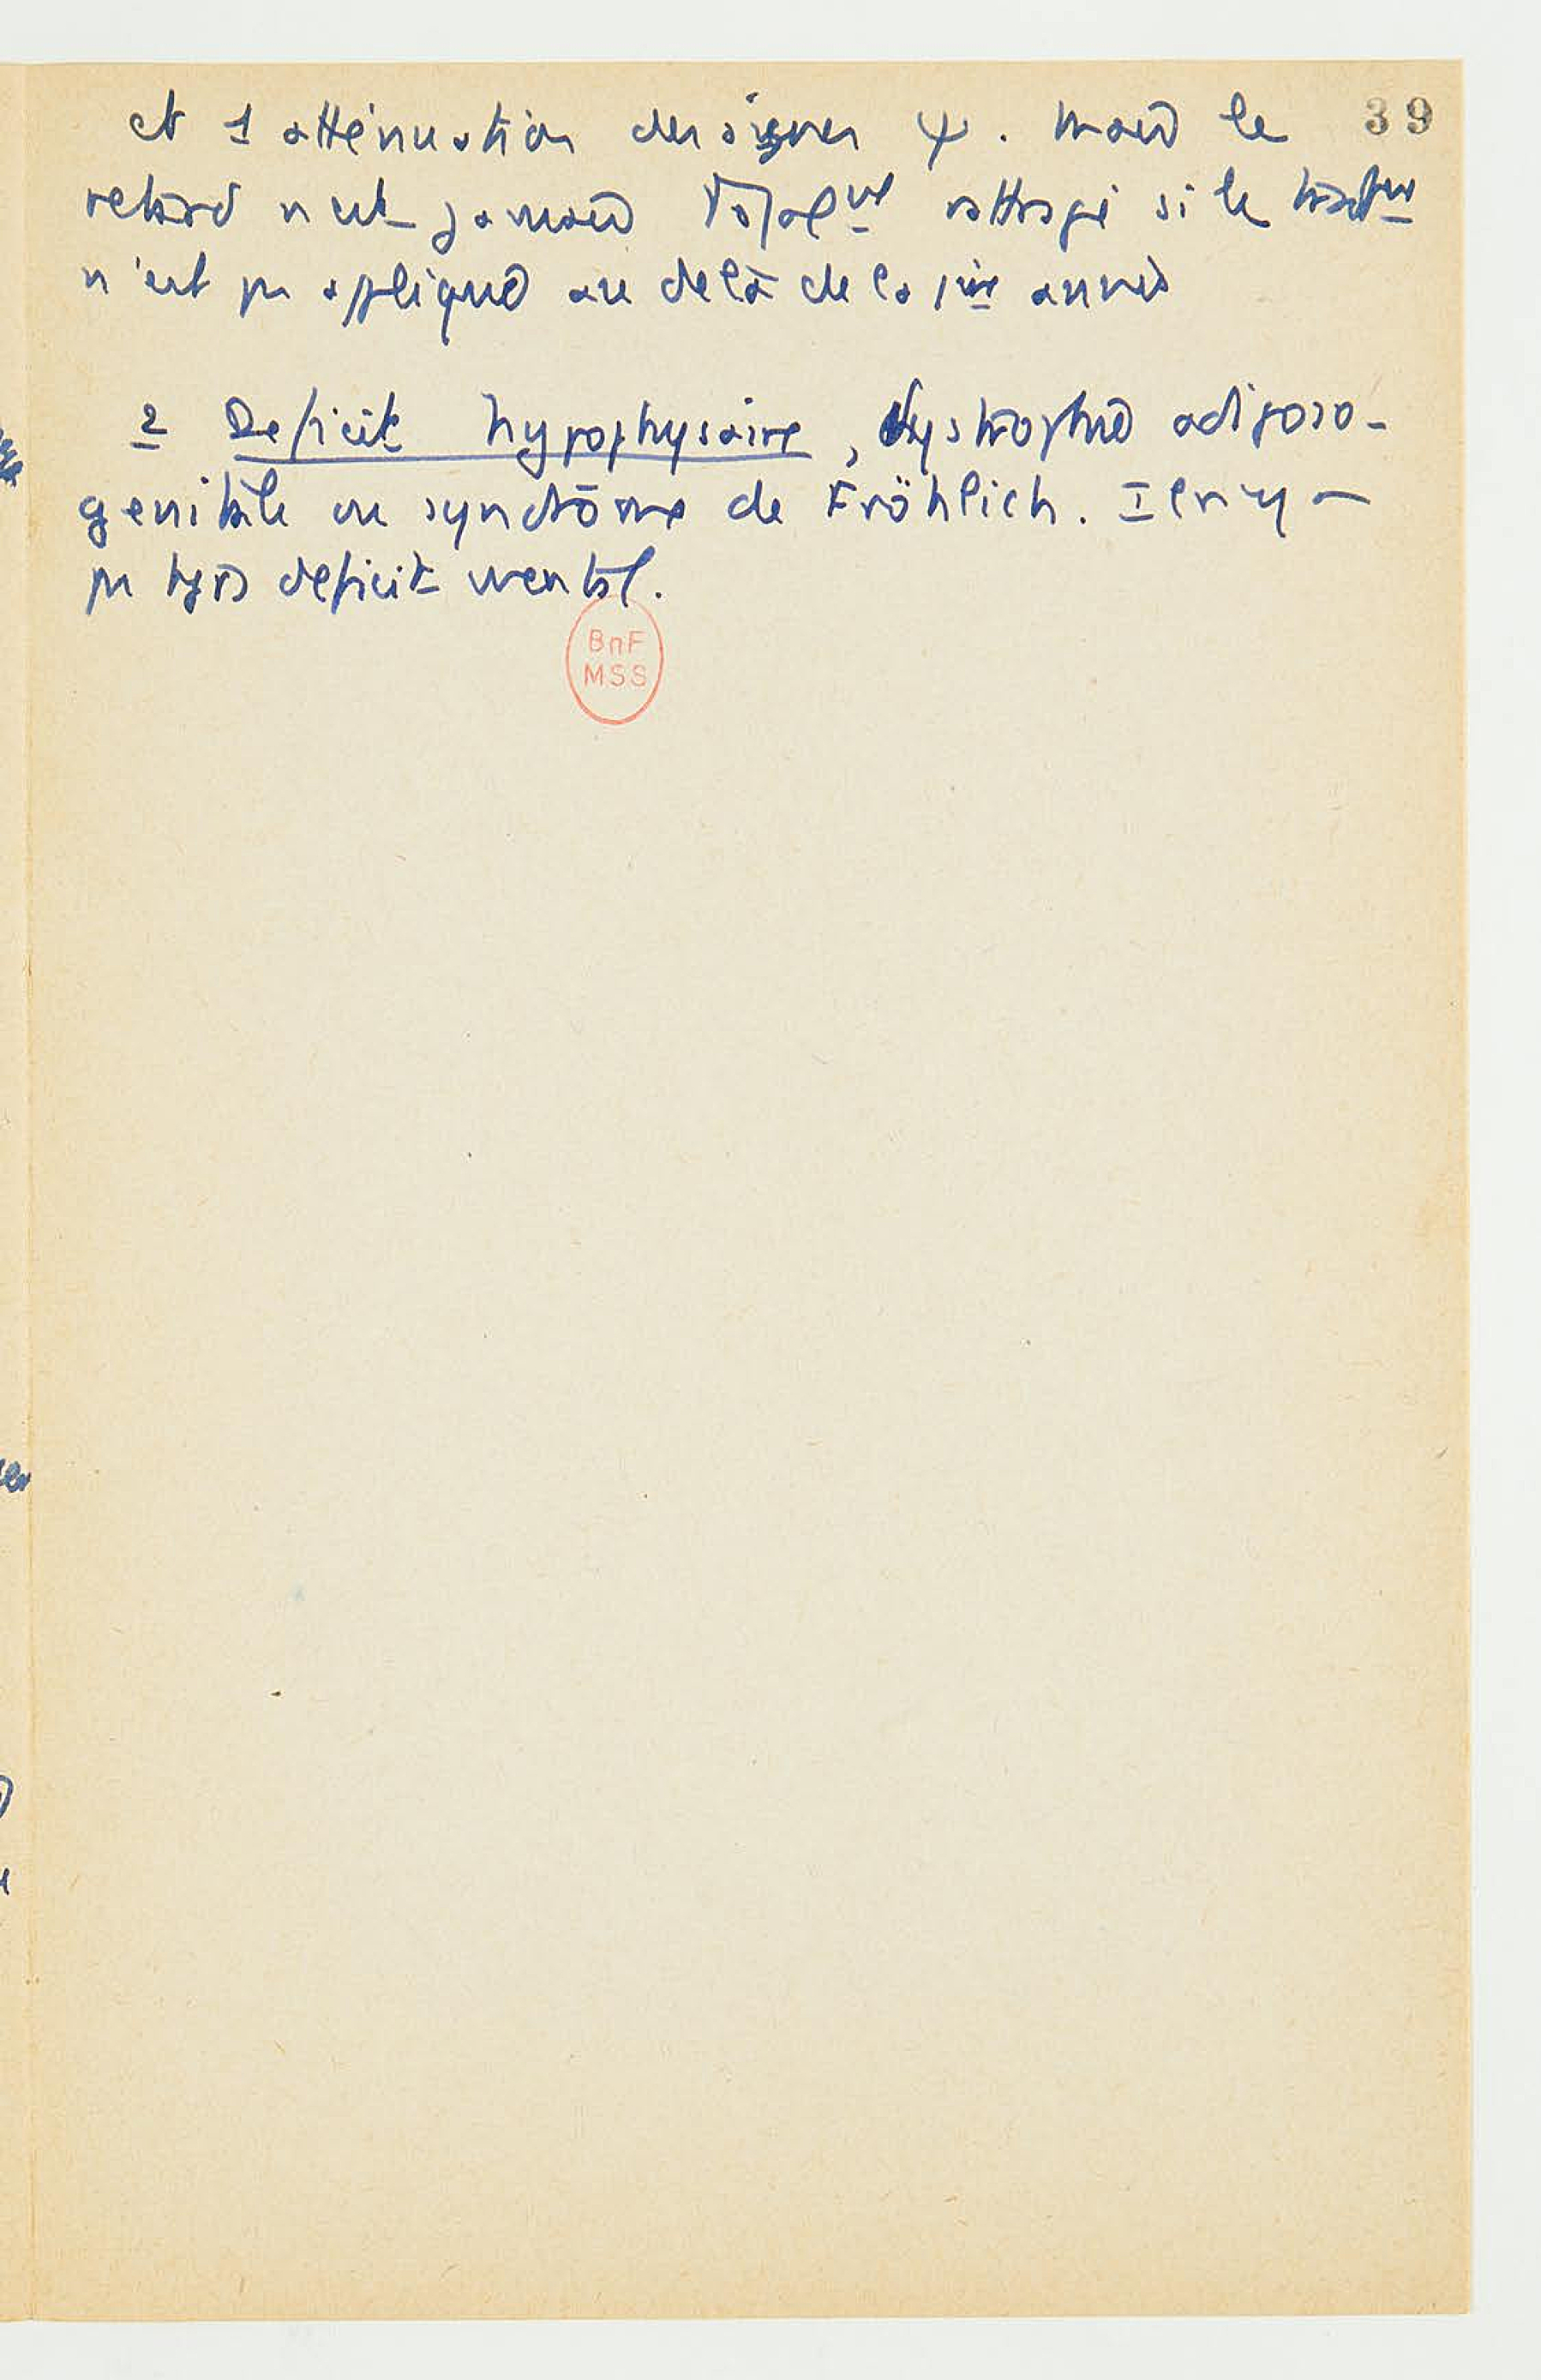 39
et 1 atténuation des signes ψ. Mais le
retard n'est jamais total^nt rattrapé si le trait^nt
n'est pas appliqué au delà de la 1ère année
2 Deficit hypophysaire, dystrophie adiposo-
genitale ou syndrôme de Fröhlich. Il n'y a
pas tjrs deficit mental.
BnF
MSS